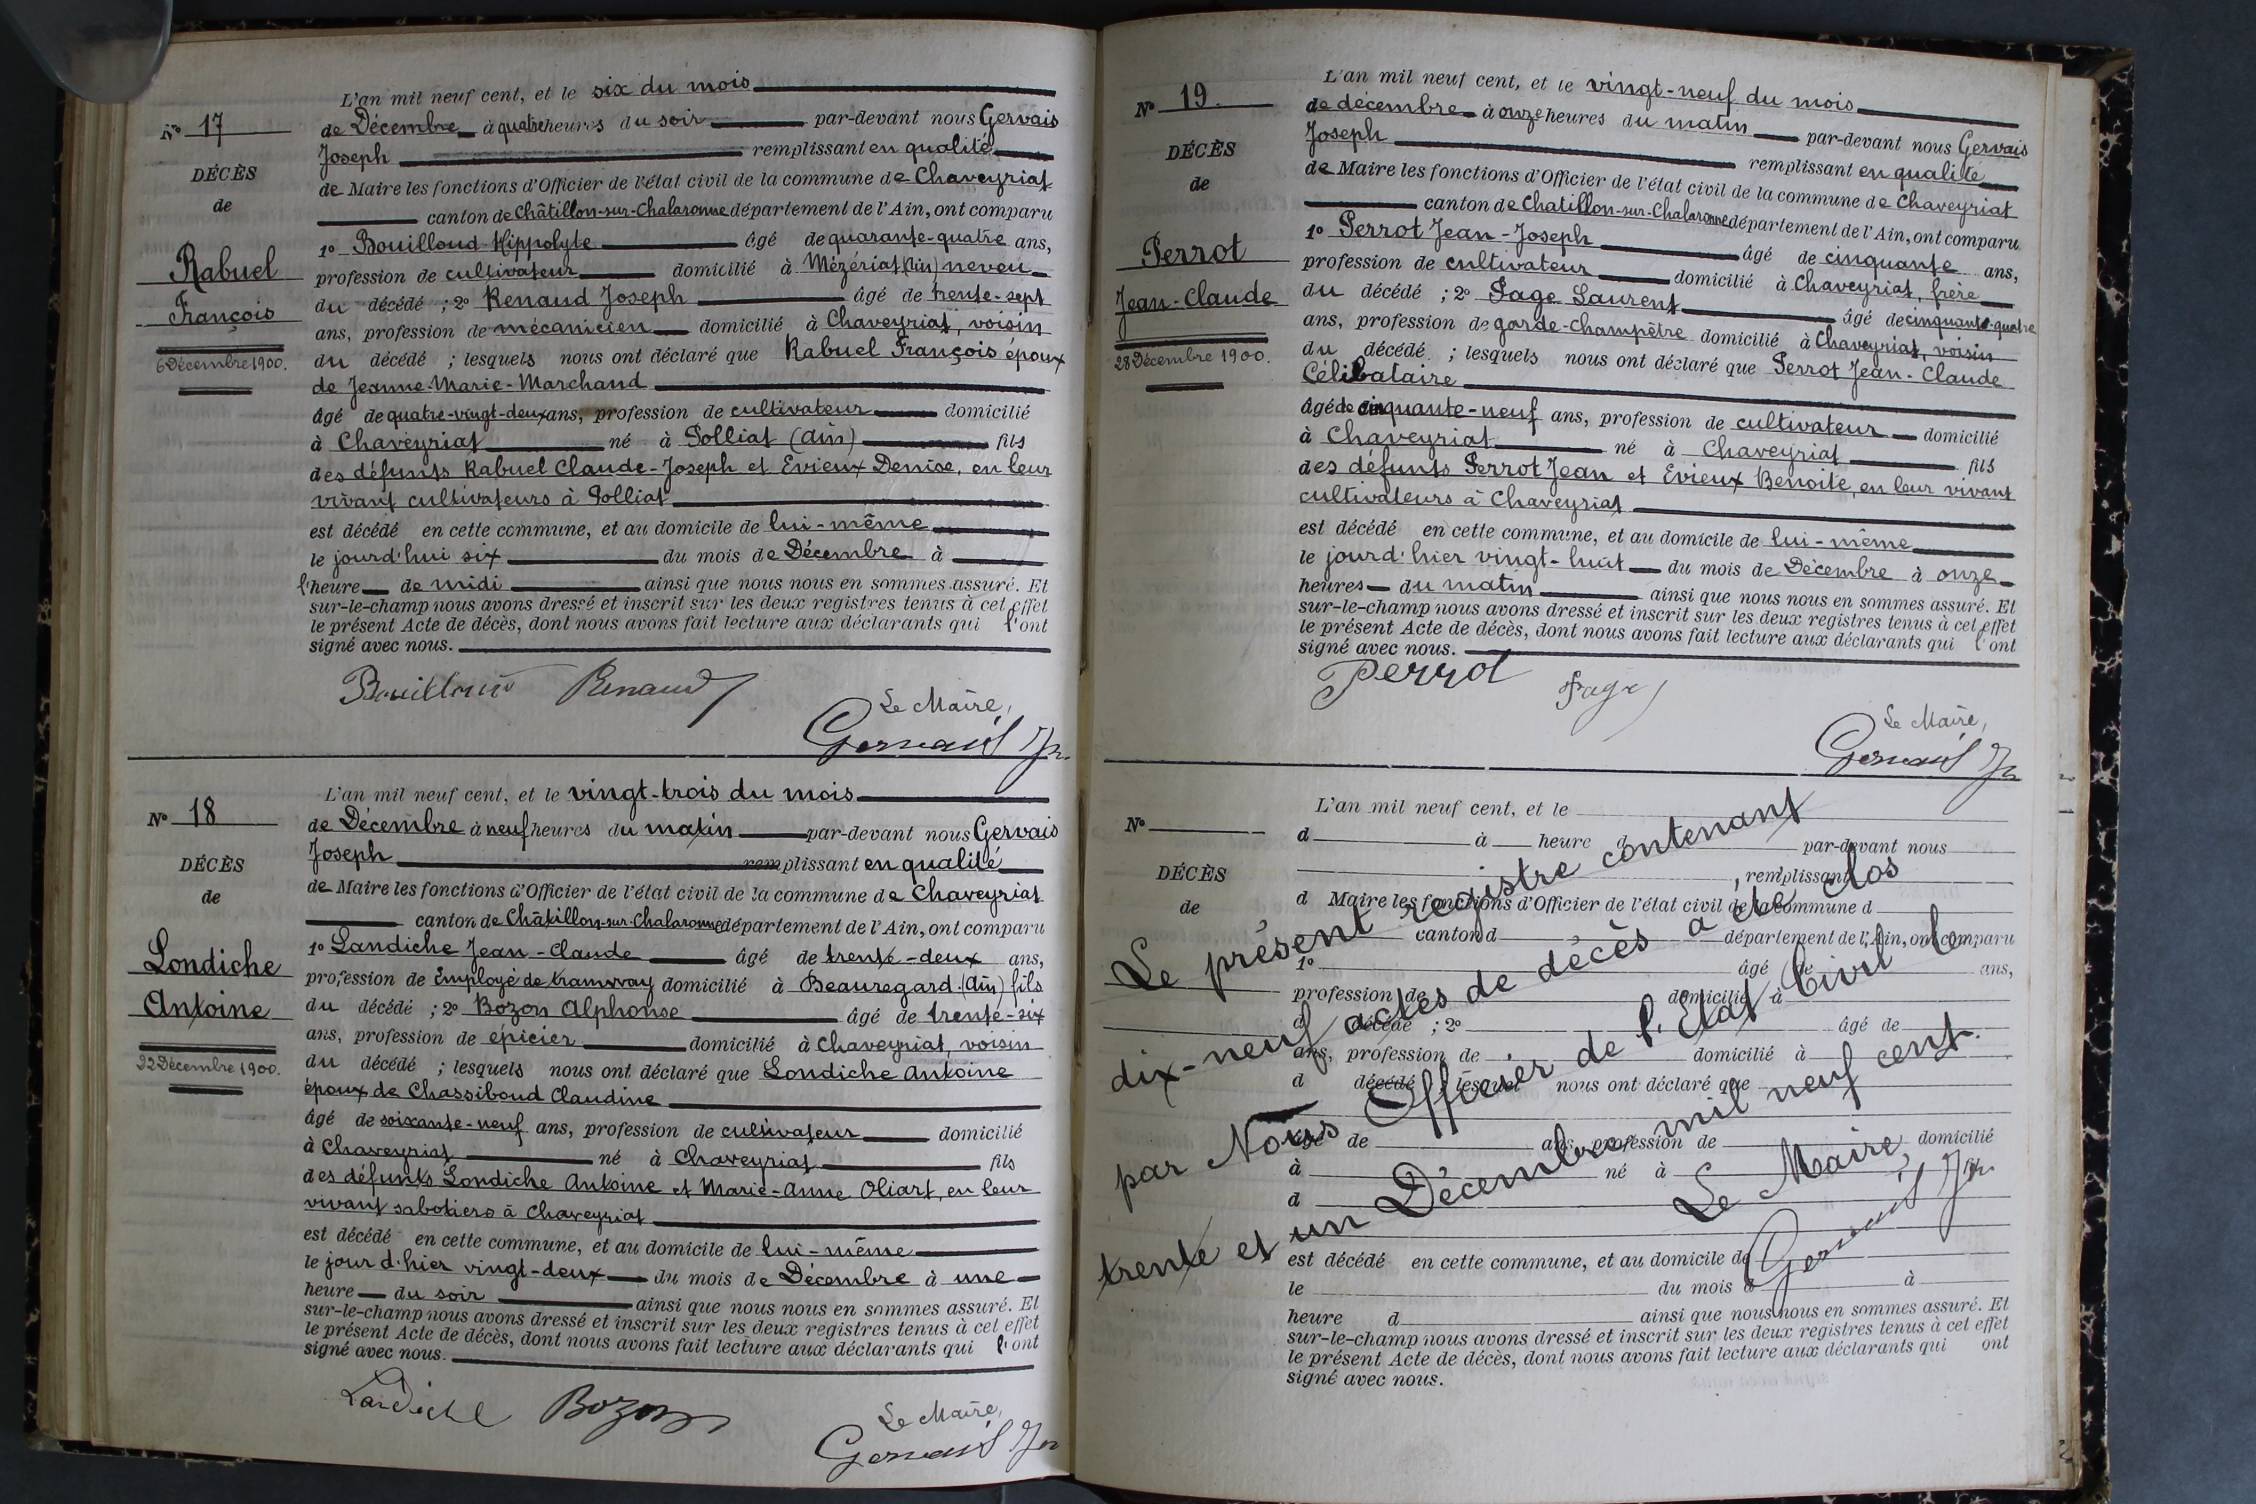 N° 17
DÉCÈS
de
Rabuel
François
6 Décembre 1900.
L'an mil neuf cent, et le six du mois
de Décembre à quatre heures du soir par-devant nous Gervais
Joseph remplissant en qualité
de Maire les fonctions d'Officier de l'état civil de la commune de Chaveyriat
canton de Châtillon-sur-Chalaronne département de l'Ain, ont comparu
1° Bouilloud Hippolyte âgé de quarante-quatre ans,
profession de cultivateur domicilié à Mézériat (Ain) neveu
du décédé ; 2° Renaud Joseph âgé de trente-sept
ans, profession de mécanicien domicilié à Chaveyriat, voisin
du décédé ; lesquels nous ont déclaré que Rabuel François époux
de Jeanne-Marie-Marchand
âgé de quatre-vingt-deux ans, profession de cultivateur domicilié
à Chaveyriat né à Polliat (Ain) fils
des défunts Rabuel Claude-Joseph et Evieux Denise, en leur
vivant cultivateurs à Polliat
est décédé en cette commune, et au domicile de lui-même
le jourd'hui six du mois de Décembre à
l'heure de midi ainsi que nous nous en sommes assuré. Et
sur-le-champ nous avons dressé et inscrit sur les deux registres tenus à cet effet
le présent Acte de décès, dont nous avons fait lecture aux déclarants qui l'ont
signé avec nous.
Bouilloud Renaud
Le Maire,
Gervais Jh
N° 18
DÉCÈS
de
Londiche
Antoine
22 Décembre 1900.
L'an mil neuf cent, et le vingt-trois du mois
de Décembre à neuf heures du matin par-devant nous Gervais
Joseph remplissant en qualité
de Maire les fonctions d'Officier de l'état civil de la commune de Chaveyriat
canton de Châtillon-sur-Chalaronne département de l'Ain, ont comparu
1° Landiche Jean-Claude âgé de trente-deux ans,
profession de Employé de tramway domicilié à Beauregard (Ain) fils
du décédé ; 2° Bozon Alphonse âgé de trente-six
ans, profession de épicier domicilié à Chaveyriat, voisin
du décédé ; lesquels nous ont déclaré que Londiche Antoine
époux de Chassiboud Claudine
âgé de soixante-neuf ans, profession de cultivateur domicilié
à Chaveyriat né à Chaveyriat fils
des défunts Londiche Antoine et Marie-Anne Oliart, en leur
vivant sabotiers à Chaveyriat
est décédé en cette commune, et au domicile de lui-même
le jour d'hier vingt-deux du mois de Décembre à une
heure du soir ainsi que nous nous en sommes assuré. Et
sur-le-champ nous avons dressé et inscrit sur les deux registres tenus à cet effet
le présent Acte de décès, dont nous avons fait lecture aux déclarants qui l'ont
signé avec nous.
Landiche Bozon
Le Maire,
Gervais Jh
N° 19.
DÉCÈS
de
Perrot
Jean-Claude
28 Décembre 1900.
L'an mil neuf cent, et le vingt-neuf du mois
de décembre à onze heures du matin par-devant nous Gervais
Joseph remplissant en qualité
de Maire les fonctions d'Officier de l'état civil de la commune de Chaveyriat
canton de Chatillon-sur-Chalaronne département de l'Ain, ont comparu
1° Perrot Jean-Joseph âgé de cinquante ans,
profession de cultivateur domicilié à Chaveyriat, frère
du décédé ; 2° Page Laurent âgé de cinquante-quatre
ans, profession de garde-champêtre domicilié à Chaveyriat, voisin
du décédé ; lesquels nous ont déclaré que Perrot Jean-Claude
Célibataire
âgé de cinquante-neuf ans, profession de cultivateur domicilié
à Chaveyriat né à Chaveyriat fils
des défunts Perrot Jean et Evieux Benoite, en leur vivant
cultivateurs à Chaveyriat
est décédé en cette commune, et au domicile de lui-même
le jour d'hier vingt-huit du mois de Décembre à onze
heures du matin ainsi que nous nous en sommes assuré. Et
sur-le-champ nous avons dressé et inscrit sur les deux registres tenus à cet effet
le présent Acte de décès, dont nous avons fait lecture aux déclarants qui l'ont
signé avec nous.
Perrot Page
Le Maire,
Gervais Jh
N°
DÉCÈS
de
L'an mil neuf cent, et le
d à heure d par-devant nous
, remplissant
d Maire les fonctions d'Officier de l'état civil de la commune d
canton d département de l'Ain, ont comparu
1° âgé de ans,
profession de domicilié à
d décédé ; 2° âgé de
ans, profession de domicilié à
d décédé ; lesquel nous ont déclaré que
âgé de ans, profession de domicilié
à né à fil
d
est décédé en cette commune, et au domicile de
le du mois d à
heure d ainsi que nous nous en sommes assuré. Et
sur-le-champ nous avons dressé et inscrit sur les deux registres tenus à cet effet
le présent Acte de décès, dont nous avons fait lecture aux déclarants qui ont
signé avec nous.
Le présent registre contenant
dix-neuf actes de décès a été clos
par Nous Officier de l'Etat Civil le
trente et un Décembre mil neuf cent.
Le Maire,
Gervais Jh